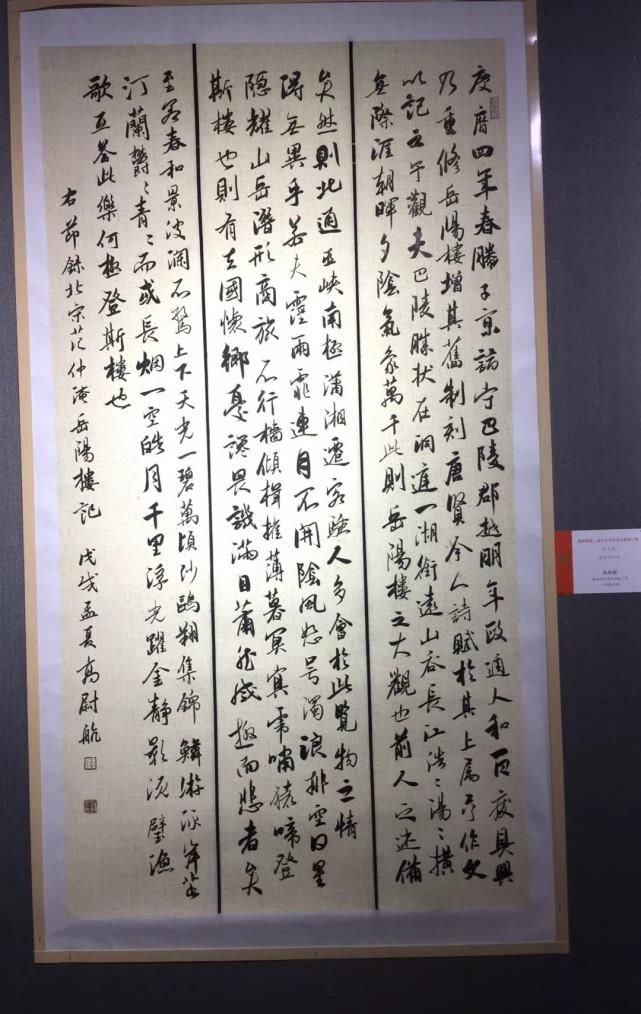 慶曆四年春滕子京謫守巴陵郡越明年政通人和百廢具興
乃重修岳陽樓增其舊制刻唐賢今人詩賦於其上屬予作文
以記之予觀夫巴陵勝狀在洞庭一湖銜遠山吞長江浩〻湯〻橫
無際涯朝暉夕陰氣象萬千此則岳陽樓之大觀也前人之述備
矣然則北通巫峽南極瀟湘遷客騷人多會於此覽物之情
得無異乎若夫霪雨霏連月不開陰風怒号濁浪排空日星
隱耀山岳潛形商旅不行檣傾楫摧薄暮冥冥虎嘯猿啼登
斯樓也則有去國懷鄉憂讒畏譏滿目蕭然感極而悲者矣
至若春和景波瀾不驚上下天光一碧萬頃沙鷗翔集錦鱗游泳岸芷
汀蘭鬱〻青〻而或長烟一空皓月千里浮光躍金靜影沉璧漁
歌互答此樂何極登斯樓也
右節錄北宋范仲淹岳陽樓記 戊戌孟夏高尉航